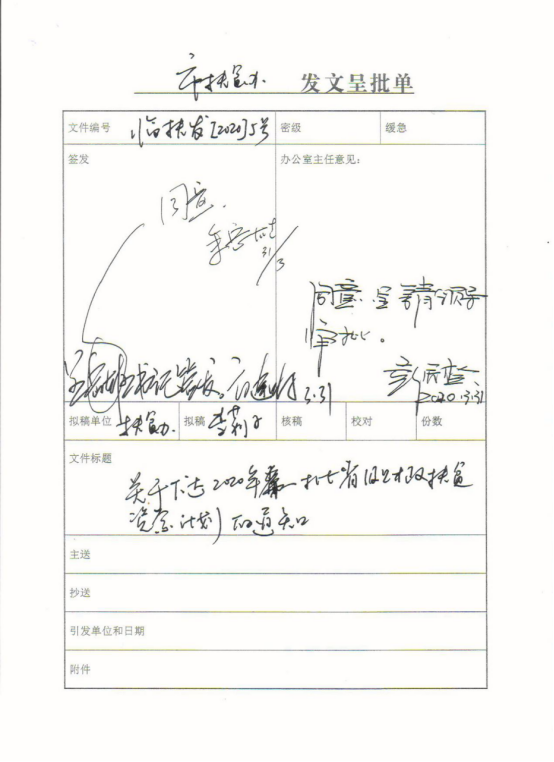 市扶贫办 发文呈批单
文件编号 临扶发[2020]5号 密级 缓急
签发 办公室主任意见:
同意.
31/3
同意.呈请领导
审批。
签发。
3.31
2020.3.31
拟稿单位 扶贫办. 拟稿 李莉 核稿 校对 份数
文件标题
关于下达2020年第一批省级财政扶贫
资金计划的通知
主送
抄送
引发单位和日期
附件